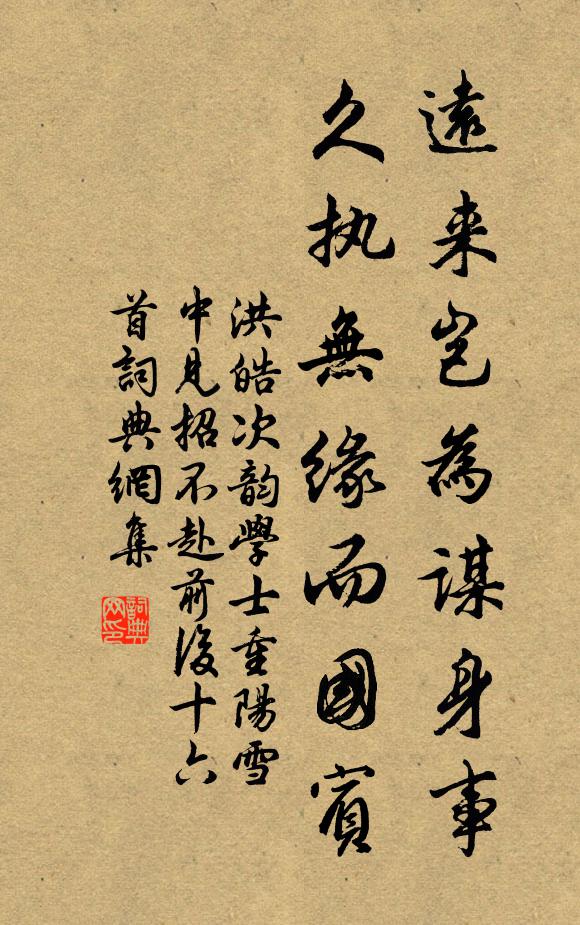 遠来岂為謀身事
久执無緣而國賓
洪皓次韵學士重陽雪
中見招不赴前後十六
首詞典網集
詞典
网印